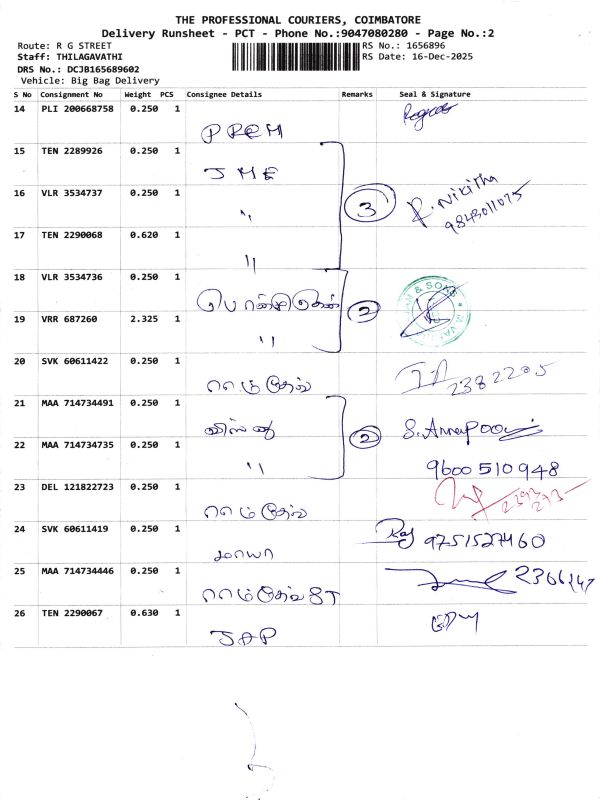 THE PROFESSIONAL COURIERS, COIMBATORE
Delivery Runsheet - PCT - Phone No.:9047080280 - Page No.:2
Route: R G STREET RS No.: 1656896
Staff: THILAGAVATHI RS Date: 16-Dec-2025
DRS No.: DCJB165689602
Vehicle: Big Bag Delivery
S No Consignment No Weight PCS Consignee Details Remarks Seal & Signature
14 PLI 200668758 0.250 1
PREM
15 TEN 2289926 0.250 1
JME
16 VLR 3534737 0.250 1
" 3 R. Nikitha
9843011075
17 TEN 2290068 0.620 1
"
18 VLR 3534736 0.250 1
2 & SONS
19 VRR 687260 2.325 1
"
20 SVK 60611422 0.250 1
2382205
21 MAA 714734491 0.250 1
2
22 MAA 714734735 0.250 1
" 9600510948
23 DEL 121822723 0.250 1
24 SVK 60611419 0.250 1
Raj 9751527460
மாயா
25 MAA 714734446 0.250 1
26 TEN 2290067 0.630 1
JAP